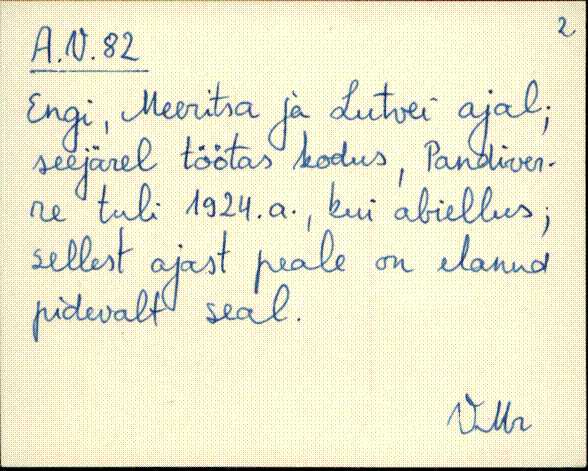 2
A.V.82
Engi, Meeritsa ja Lutvei ajal;
seejärel töötas kodus, Pandiver-
re tuli 1924.a., kui abiellus;
sellest ajast peale on elanud
pidevalt seal.
VMr